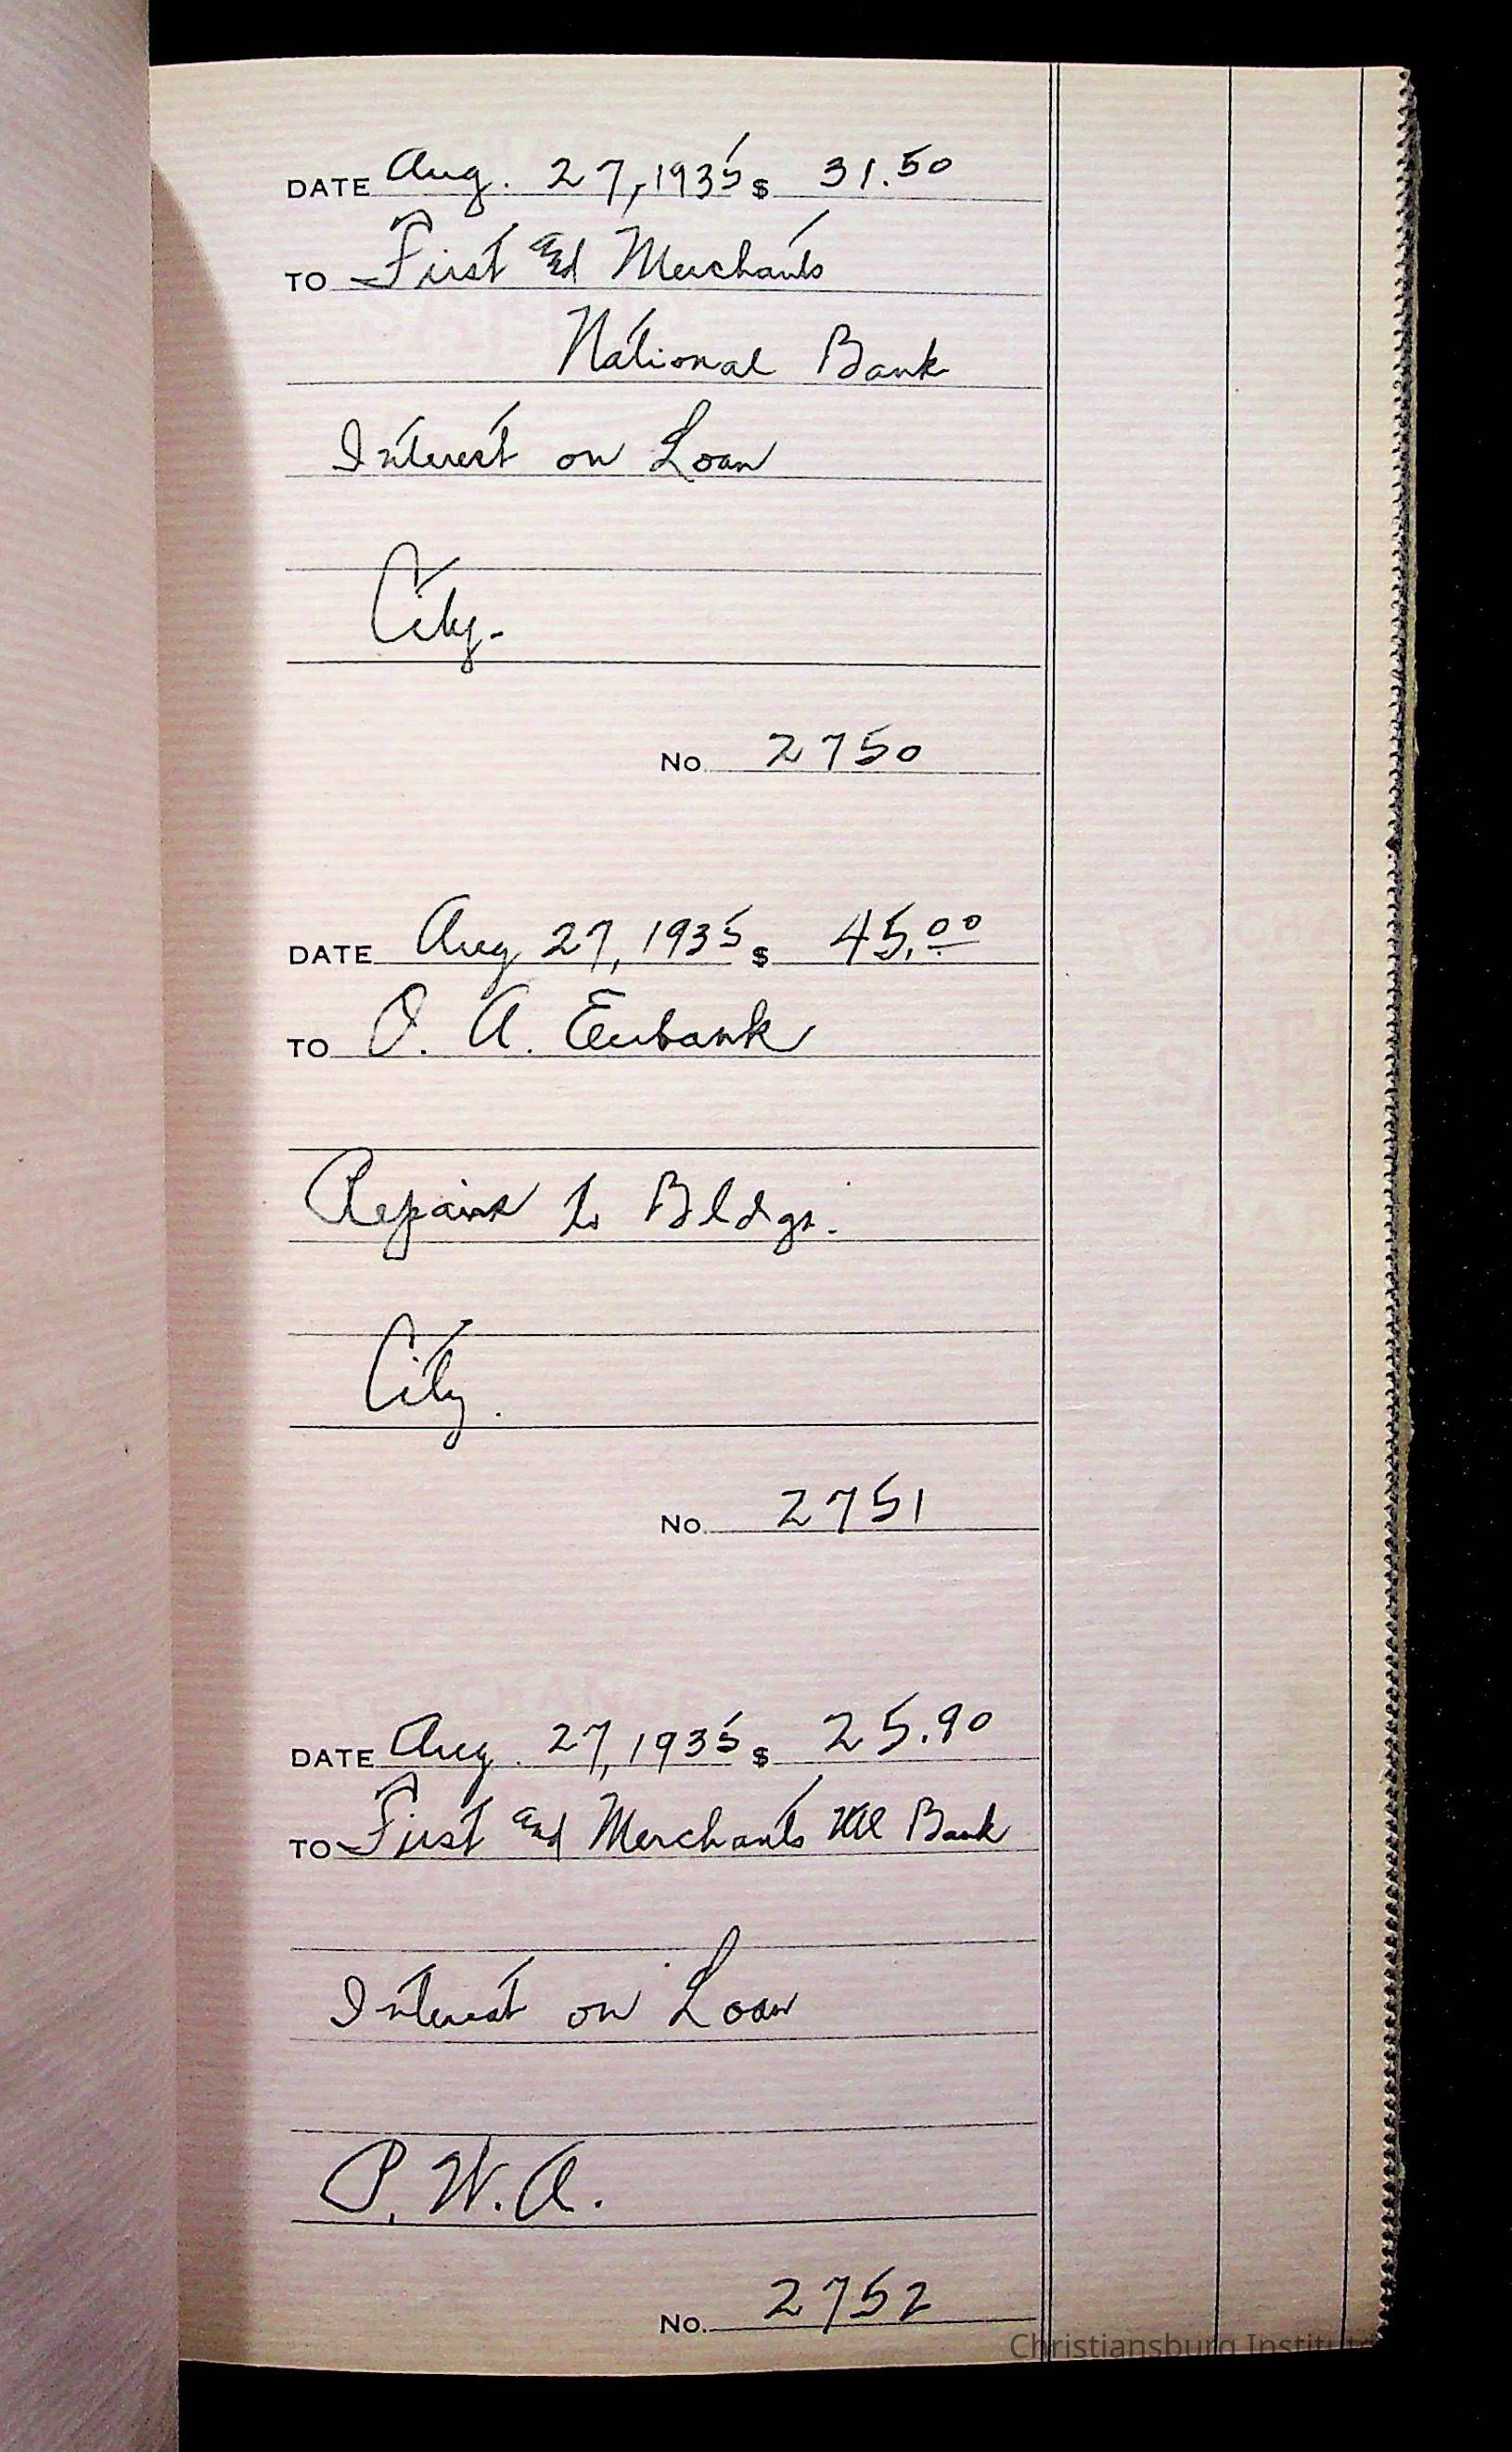 DATE Aug. 27, 1935 $ 31.50
TO First and Merchants
National Bank
Interest on Loan
City.
No. 2750
DATE Aug 27, 1935 $ 45.00
TO O. A. Eubank
Repairs to Bldgs.
City.
No. 2751
DATE Aug. 27, 1935 $ 25.90
TO First and Merchants Ntl Bank
Interest on Loan
P. W. A.
No. 2752
Christiansburg Institute